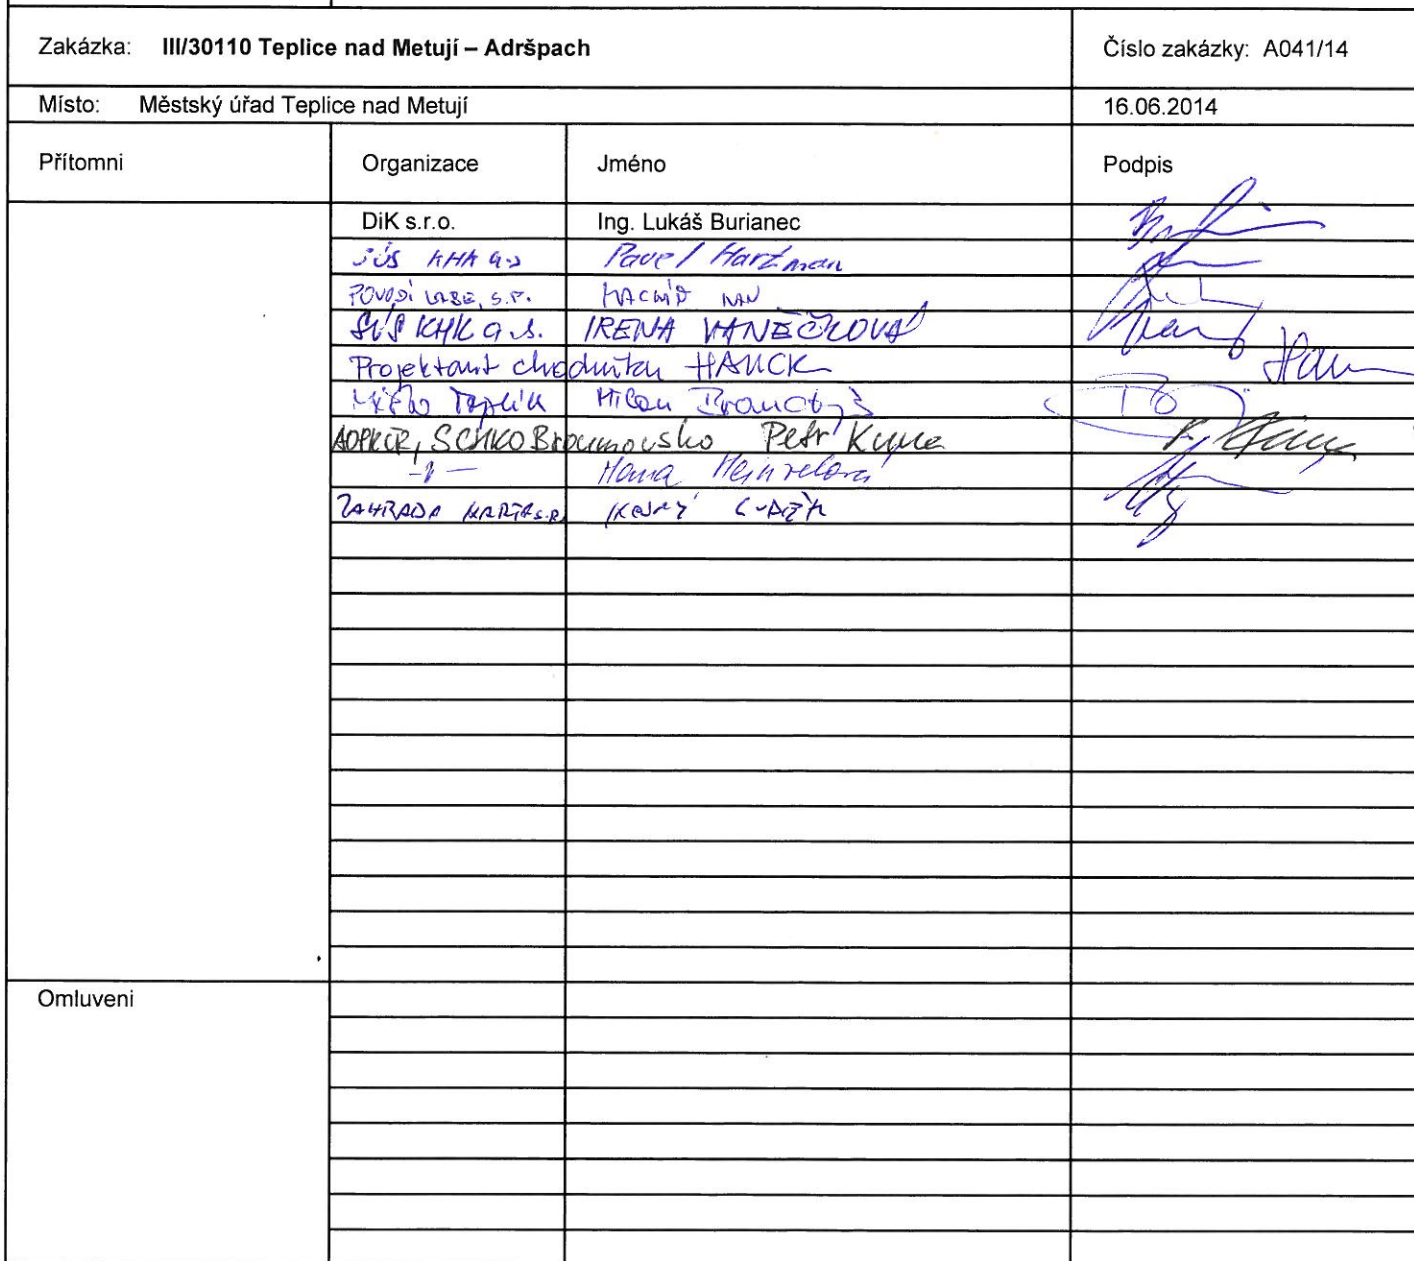 Zakázka: III/30110 Teplice nad Metují – Adršpach Číslo zakázky: A041/14
Místo: Městský úřad Teplice nad Metují 16.06.2014
Přítomni Organizace Jméno Podpis
DiK s.r.o. Ing. Lukáš Burianec
SÚS KHK a.s Pavel Hartman
POVODÍ LABE, S.P.
SÚS KHK a.s. IRENA VANĚČKOVÁ
Projektant chodníku HAUCK
Milan
AOPK ČR, SCHKO Broumovsko Petr Kuna
-"- Hana Heinzelová
ZAHRADA
Omluveni